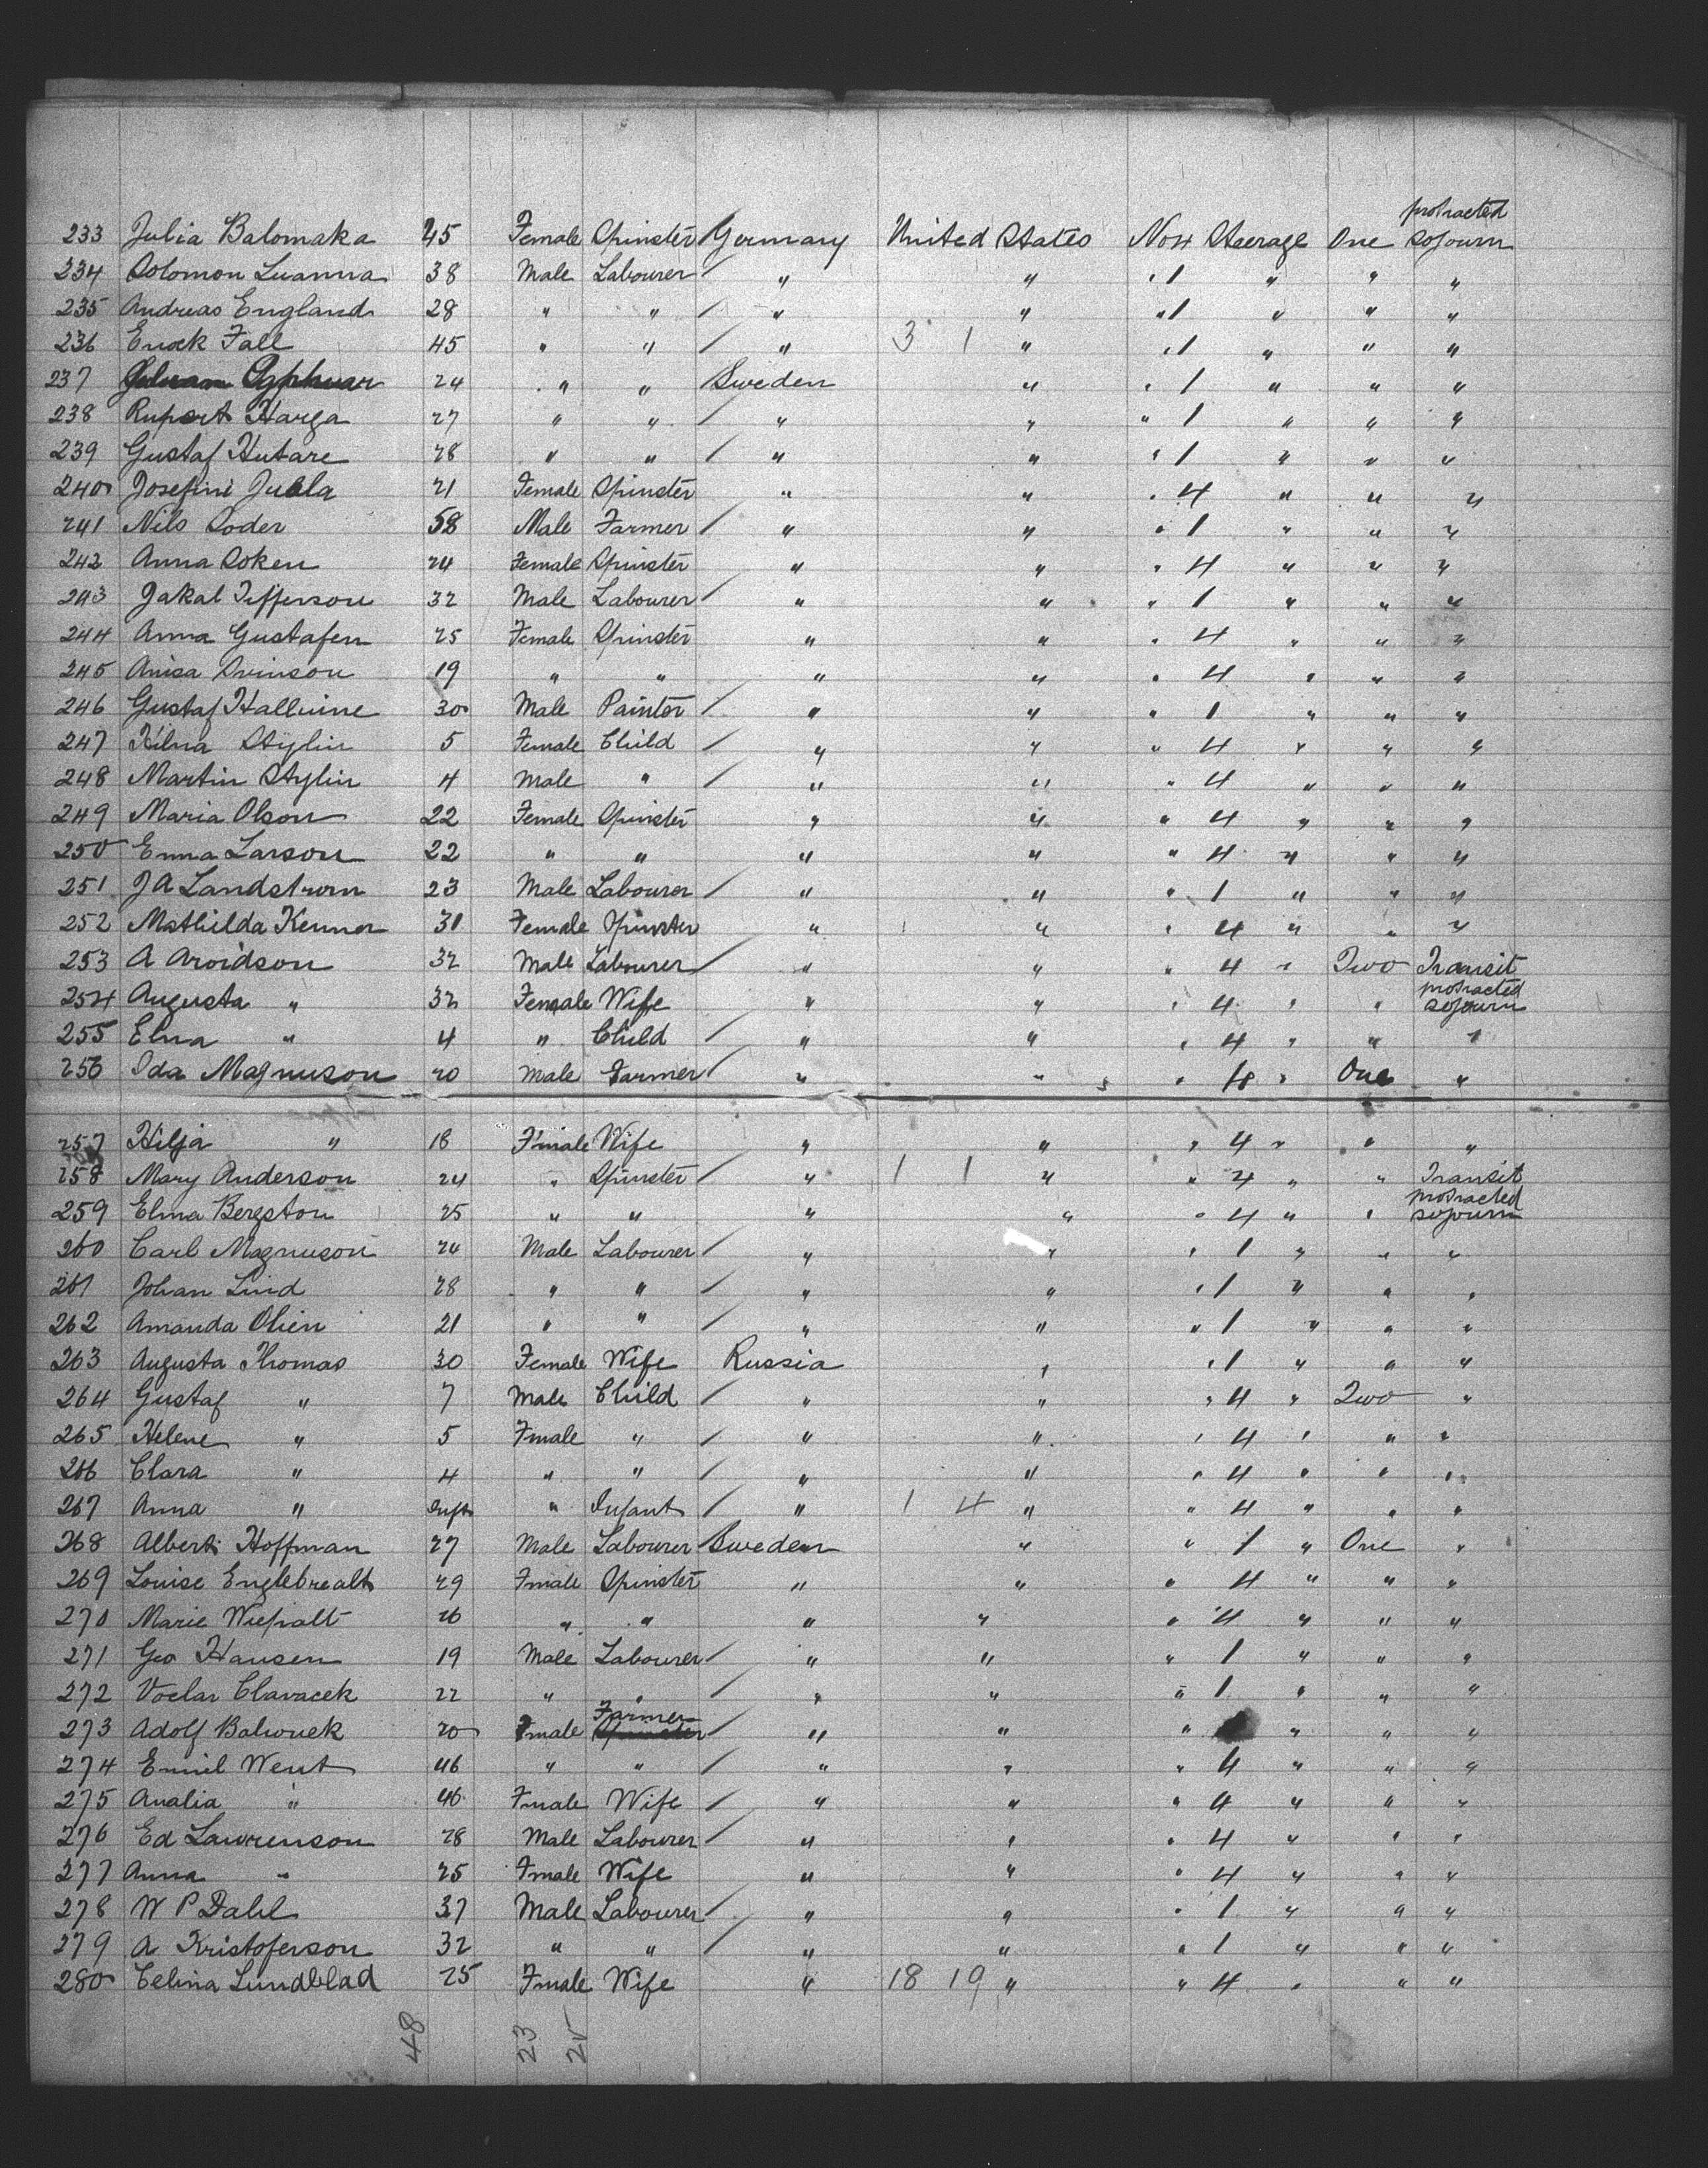 233 Julia Balomaka 45 Female Spinster Germany United States No 4 Steerage One protracted sojourn
234 Solomon Luanna 38 Male Labourer / " " " 1 " " "
235 Andreas England 28 " " / " " " 1 " " "
236 Enock Fall 45 " " / " 3 1 " " 1 " " "
237 24 " " Sweden " " 1 " " "
238 Rupert Harga 27 " " / " " " 1 " " "
239 Gustaf Hutare 28 " " / " " " 1 " " "
240 Josefini Jubla 21 Female Spinster " " " 4 " " "
241 Nils Soder 58 Male Farmer / " " " 1 " " "
242 Anna Soken 24 Female Spinster " " " 4 " " "
243 Jakal Jefferson 32 Male Labourer / " " " 1 " " "
244 Anna Gustafen 25 Female Spinster " " " 4 " " "
245 Anisa Svinson 19 " " " " " 4 " " "
246 Gustaf Hallvine 30 Male Painter / " " " 1 " " "
247 Hilna Stylin 5 Female Child / " " " 4 " " "
248 Martin Stylin 4 Male " / " " " 4 " " "
249 Maria Olson 22 Female Spinster " " " 4 " " "
250 Emma Larson 22 " " " " " 4 " " "
251 J A Landstrom 23 Male Labourer / " " " 1 " " "
252 Mathilda Kenner 31 Female Spinster " " " 4 " " "
253 A Arvidson 32 Male Labourer / " " " 4 " Two Transit
254 Augusta " 32 Female Wife " " " 4 " " protracted sojourn
255 Elna " 4 " Child " " " 4 " " "
256 Ida Magnuson 20 Male Farmer / " " " 4 " One "
257 Hilja " 18 Female Wife " " " 4 " " "
258 Mary Anderson 24 " Spinster " 1 1 " " 4 " " Transit
259 Elma Bergston 25 " " " " " 4 " " protracted sojourn
260 Carl Magnuson 24 Male Labourer / " " " 1 " " "
261 Johan Lind 28 " " / " " " 1 " " "
262 Amanda Olien 21 " " / " " " 1 " " "
263 Augusta Thomas 30 Female Wife Russia " " 1 " " "
264 Gustaf " 7 Male Child / " " " 4 " Two "
265 Helene " 5 Fmale " / " " " 4 " " "
266 Clara " 4 " " / " " " 4 " " "
267 Anna " Inft " Infant / " 1 4 " " 4 " " "
268 Albert Hoffman 27 Male Labourer Sweden " " 1 " One "
269 Louise Englebrealt 29 Fmale Spinster " " " 4 " " "
270 Marie Wiepalt 26 " " " " " 4 " " "
271 Geo Hansen 19 Male Labourer / " " " 1 " " "
272 Voclar Clavacek 22 " " / " " " 1 " " "
273 Adolf Balwuek 20 male Farmer / " " " " " "
274 Emil Went 46 " " / " " " 4 " " "
275 Analia " 46 Fmale Wife / " " " 4 " " "
276 Ed Lawrenson 28 Male Labourer / " " " 4 " " "
277 Anna " 25 Fmale Wife " " " 4 " " "
278 W P Dahl 37 Male Labourer / " " " 1 " " "
279 A Kristoferson 32 " " / " " " 1 " " "
280 Celina Lundblad 25 Fmale Wife " 18 19 " " 4 " " "
48 23 25